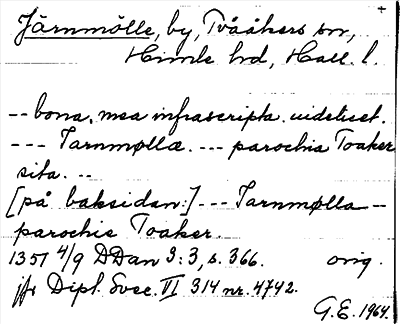 Järnmölle, by, Tvååkers sn,
Himle hd, Hall. l.
-- bona. mea infrascripta. uidelicet.
--- Jarnmøllæ. --- parochia Toaker
sita. --
[på baksidan:] --- Jarnmølla -
parochie Toaker.
1351 4/9 DDan 3:3, s. 366. orig.
jfr Dipl. Svec. VI 314 nr. 4742.
G.E. 1964.